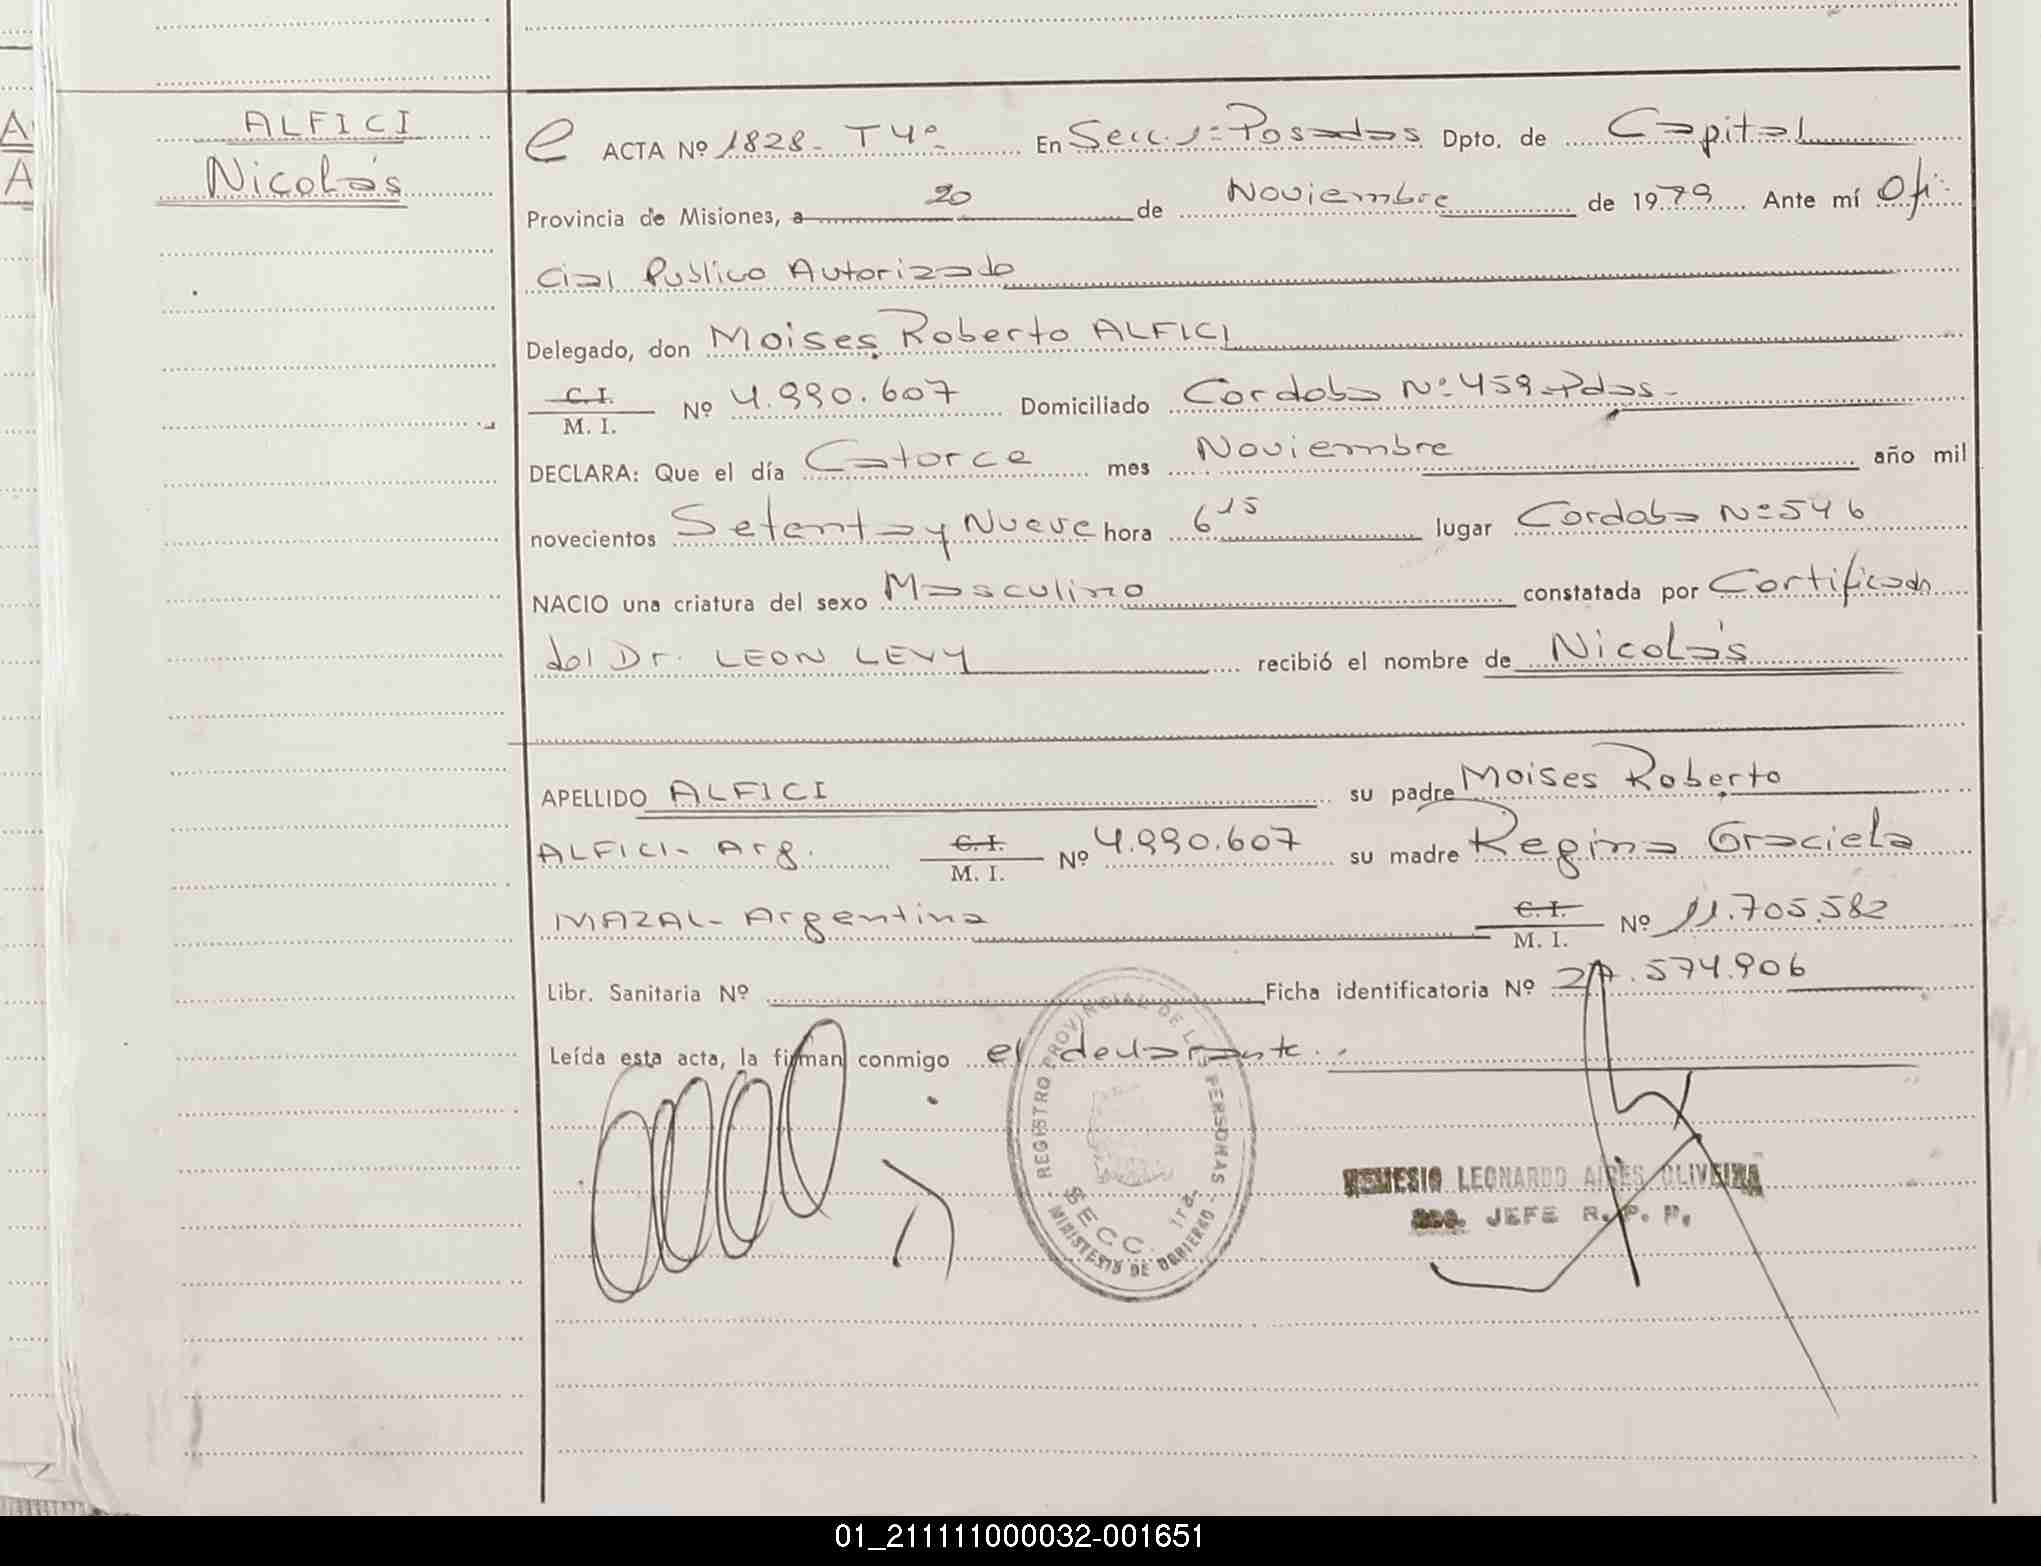 ALFICI
Nicolás
ACTA Nº 1828- T4º En Secc. 1ª Posadas Dpto. de Capital
Provincia de Misiones, a 20 de Noviembre de 1979 Ante mí Ofi
cial Publico Autorizado
Delegado, don Moises Roberto ALFICI
C. I.
M. I. Nº 4.990.607 Domiciliado Cordoba Nº 459 Pdas-
DECLARA: Que el día Catorce mes Noviembre año mil
novecientos Setenta y Nueve hora 6 15 lugar Cordoba Nº 546
NACIO una criatura del sexo Masculino constatada por Certificado
del Dr. LEON LEVY recibió el nombre de Nicolás
APELLIDO ALFICI su padre Moises Roberto
ALFICI- Arg. C. I. M. I. Nº 4.990.607 su madre Regina Graciela
MAZAL- Argentina C. I. M. I. Nº 11.705.582
Libr. Sanitaria Nº Ficha identificatoria Nº 27.574.906
Leída esta acta, la firman conmigo el declarante.
REGISTRO PROVINCIAL DE LAS PERSONAS
SECC. 1ra.
MINISTERIO DE GOBIERNO
NEMESIO LEONARDO AIRES OLIVEIRA
JEFE R. P. P.
01_211111000032-001651